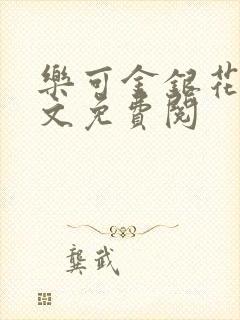 樂可金銀花
文免費閱
龔武